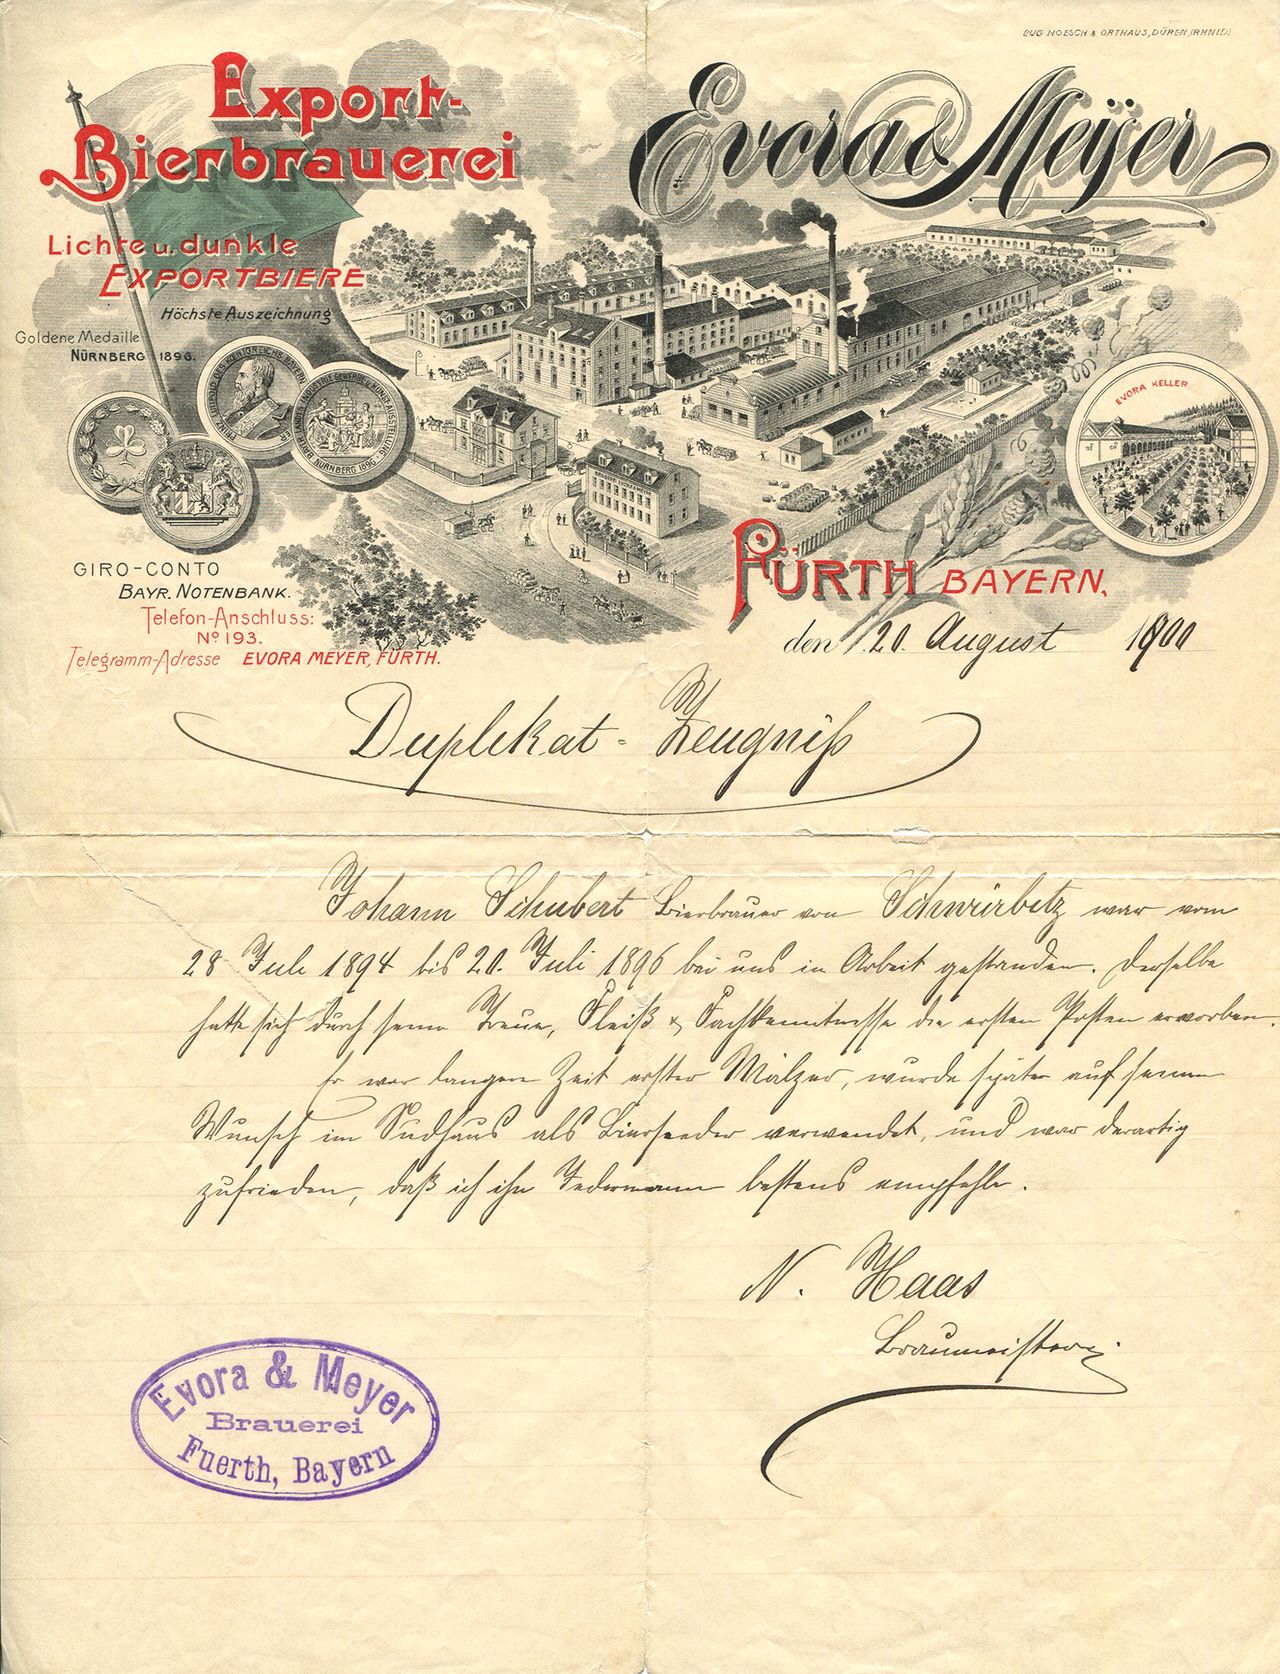 EUG HOESCH & ORTHAUS, DÜREN, (RHNLD)
Export-
Bierbrauerei
Evora & Meÿer
Lichte u. dunkle
EXPORTBIERE
Höchste Auszeichnung
Goldene Medaille
NÜRNBERG 1896.
NÜRNBERG 1896
EVORA KELLER
GIRO-CONTO
BAYR. NOTENBANK.
Telefon-Anschluss:
No 193.
Telegramm-Adresse EVORA MEYER, FÜRTH.
FÜRTH BAYERN,
den 20. August 1900
Duplikat-Zeugniß
Johann Schubert Bierbrauer von Schwürbitz war vom
28 Juli 1894 bis 20. Juli 1896 bei uns in Arbeit gestanden. Derselbe
hatte sich durch seine Treue, Fleiß & Fachkenntnisse die ersten Posten erworben.
Er war langere Zeit erster Mälzer, wurde später auf seinen
Wunsch im Sudhaus als Biersieder verwendet, und war derartig
zufrieden, daß ich ihn Jedermann bestens empfehle.
N. Haas
Braumeister
Evora & Meyer
Brauerei
Fuerth, Bayern